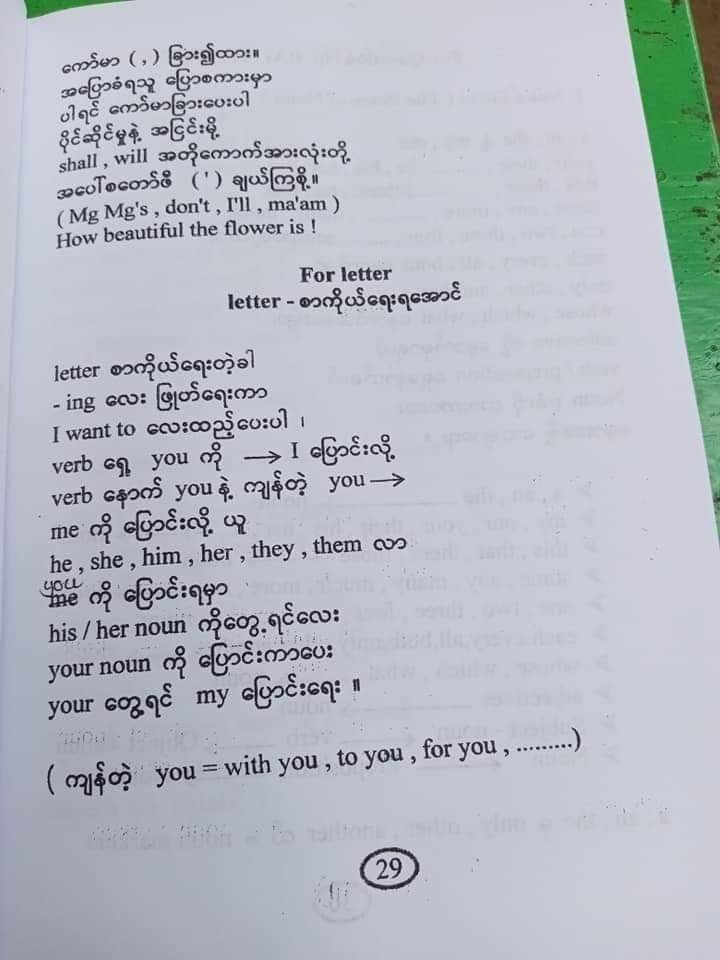 ကော်မာ ( , ) ခြား၍ထား။
အပြောခံရသူ ပြောစကားမှာ
ပါရင် ကော်မာခြားပေးပါ
ပိုင်ဆိုင်မှုနဲ့ အငြင်းမို့
shall , will အတိုကောက်အားလုံးတို့
အပေါ်စတော်ဖီ ( ' ) ချယ်ကြစို့။
( Mg Mg's , don't , I'll , ma'am )
How beautiful the flower is !
For letter
letter - စာကိုယ်ရေးရအောင်
letter စာကိုယ်ရေးတဲ့ခါ
- ing လေး ဖြုတ်ရေးကာ
I want to လေးထည့်ပေးပါ ၊
verb ရှေ့ you ကို → I ပြောင်းလို့
verb နောက် you နဲ့ ကျန်တဲ့ you →
me ကို ပြောင်းလို့ ယူ
he , she , him , her , they , them လာ
you
me ကို ပြောင်းရမှာ
his / her noun ကိုတွေ့ရင်လေး
your noun ကို ပြောင်းကာပေး
your တွေ့ရင် my ပြောင်းရေး ။
( ကျန်တဲ့ you = with you , to you , for you , .........)
29